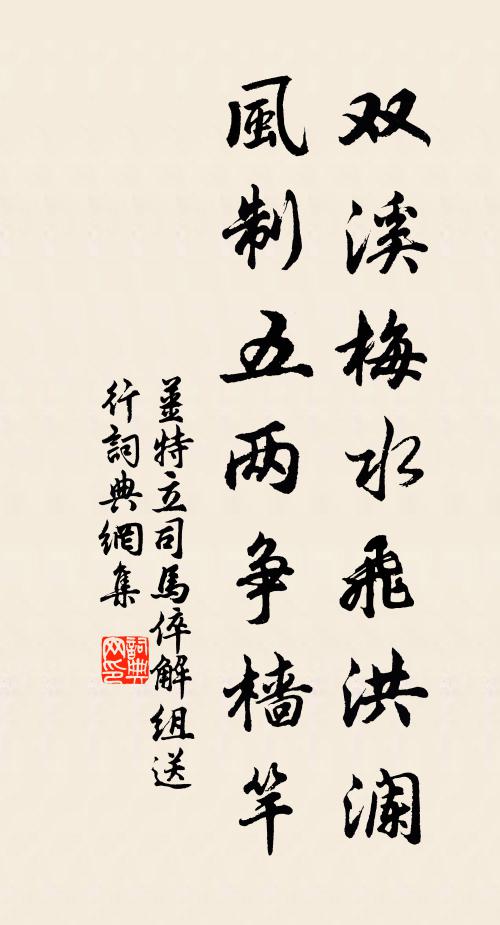 双溪梅水飛洪澜
風制五两争檣竿
薑特立司馬倅解組送
行詞典網集
詞典网印